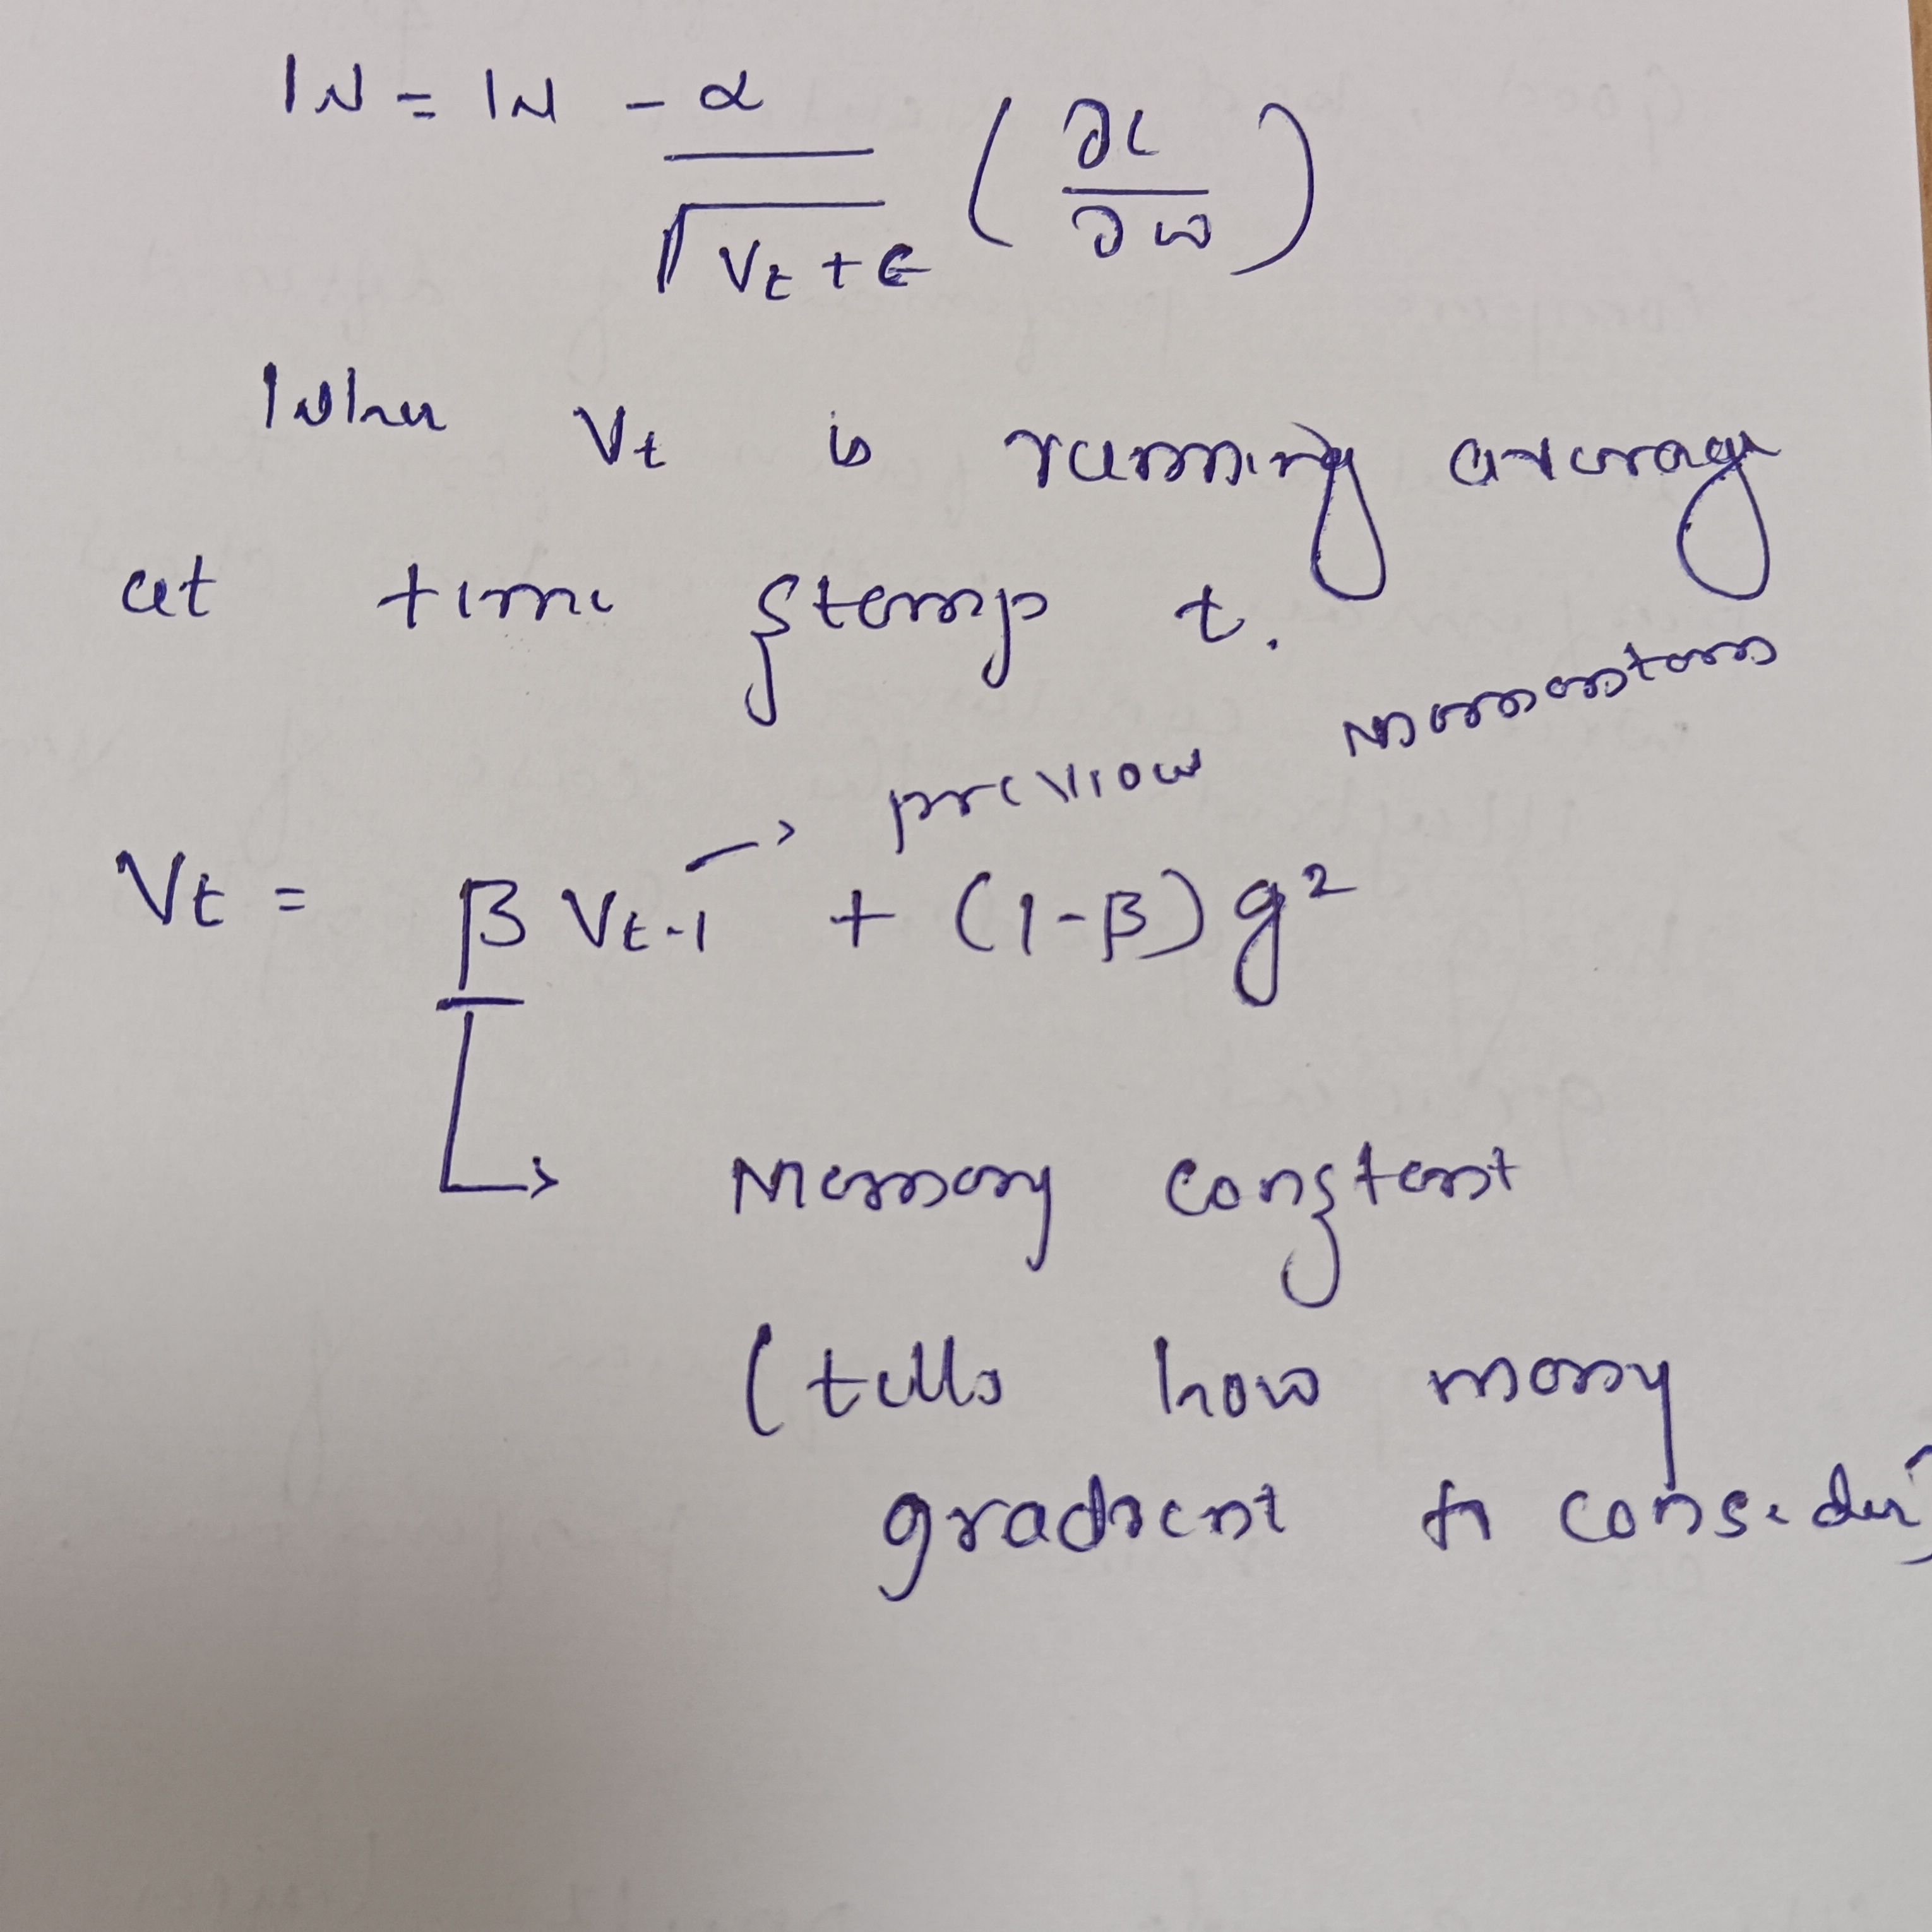 W = W - α / √(Vt + ε) (∂L / ∂w)
Where Vt is running average
at time stamp t.
→ previous momentum
Vt = β Vt-1 + (1-β) g²
↳ Memory constant
(tells how many
gradient to consider)